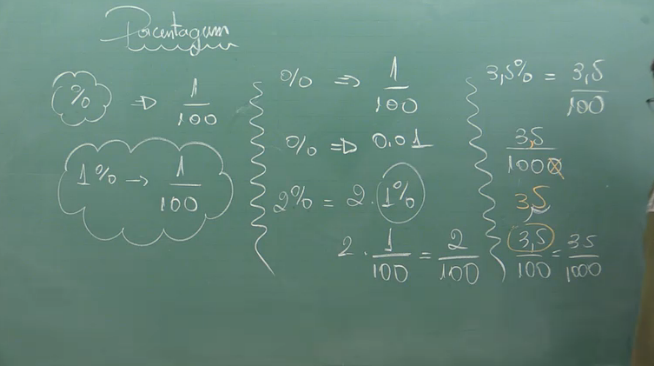 Porcentagem
% ⇒ 1/100
1% → 1/100
% ⇒ 1/100
% ⇒ 0,01
2% = 2 . 1%
2 . 1/100 = 2/100
3,5% = 3,5/100
3,5/1000
35
3,5/100 = 35/1000